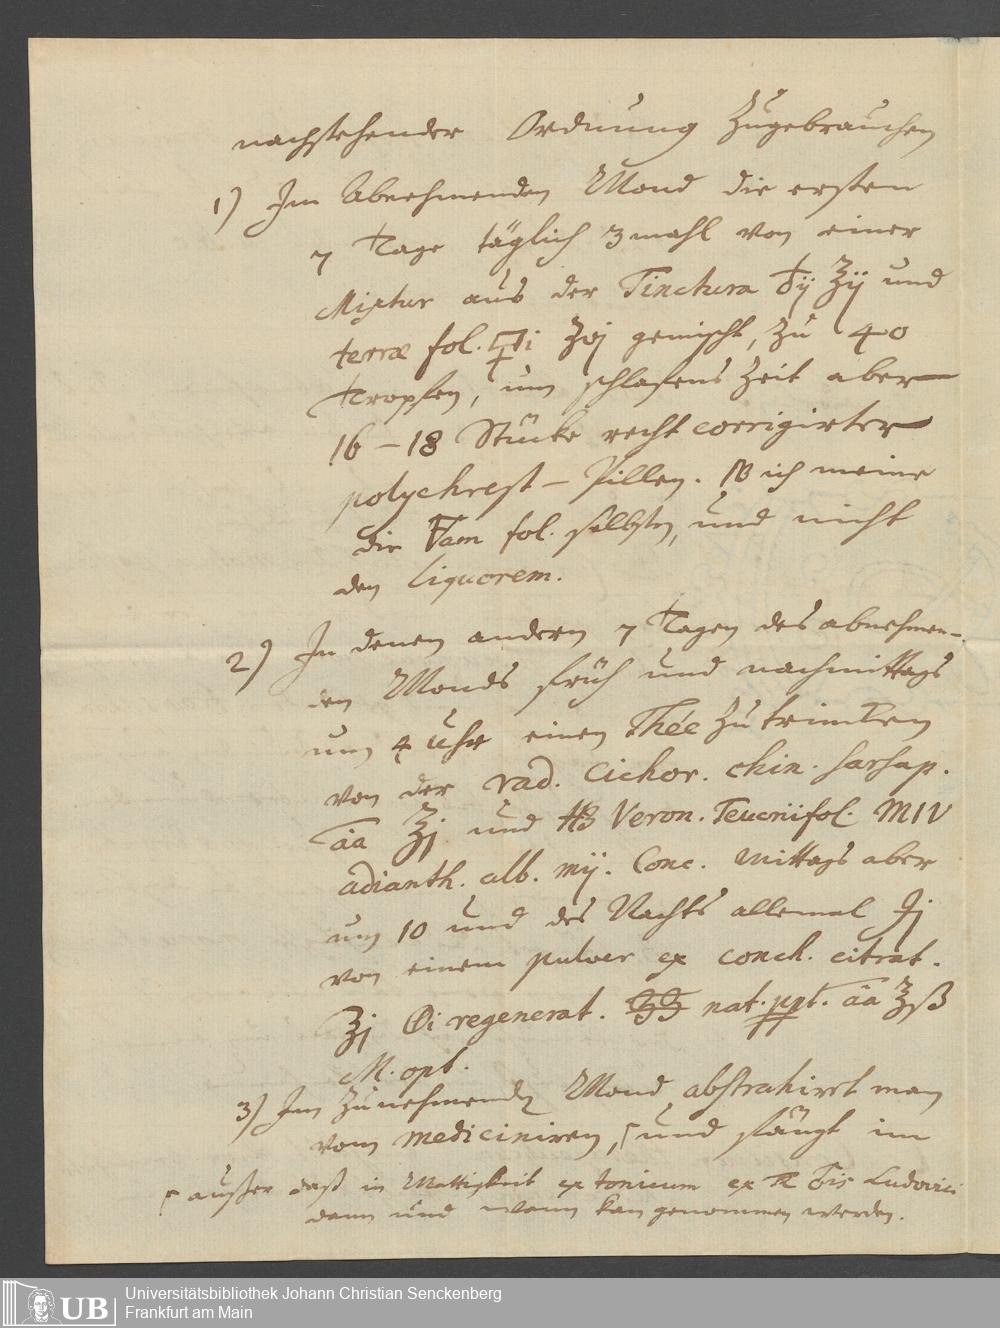 nachstehender Ordnung Zugebrauchen
1) Im Abnehmenden Mond die ersten
7 Tage täglich 3 mahl von einer
Mixtur aus der Tinctura ʒij und
terræ fol. gemischt, zu 40
tropfen, um schlafens Zeit aber
16 – 18 Stücke recht corrigirter
polychrest – Pillen. NB ich meine
die fol. selbsten, und nicht
den Liquorem.
2) In denen andern 7 Tagen des abnehmen-
den Monds früh und nachmittags
um 4 Uhr einen Thée zu trincken
von der rad. Cichor. chin. sarsap.
āa ℥j und Veron. Teucriifol. MIV
adianth. alb. mij. Conc. Mittags aber
um 10 und des Nachts allemal
von einem pulver ex conch. citrat.
℥j regenerat. nat. ppt. āa ℥ß
M. opt.
3) Im Zunehmenden Mond abstrahirt man
vom mediciniren, und fängt im
außer daß in Mattigkeit ex tonicum ex Ludovici
dann und wann kan genommen werden.
UB
Universitätsbibliothek Johann Christian Senckenberg
Frankfurt am Main